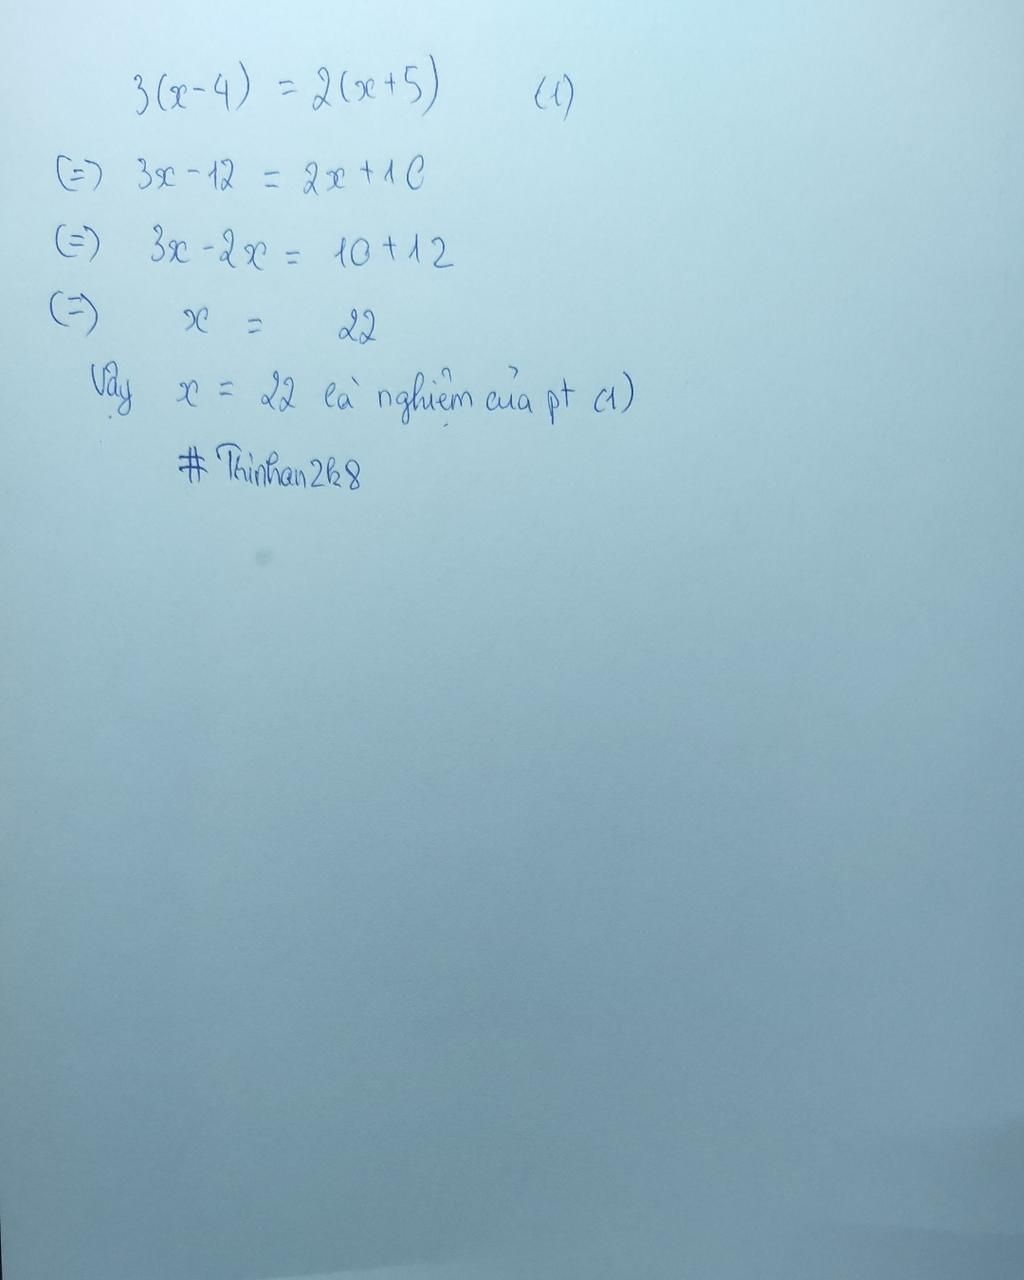 3(x-4) = 2(x+5) (1)
(=) 3x-12 = 2x+10
(=) 3x-2x = 10+12
(=) x = 22
Vậy x = 22 là nghiệm của pt (1)
# Thinhan2k8